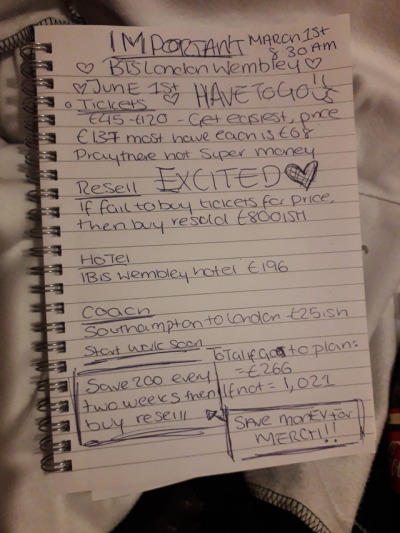 IMPORTANT MARCH 1st
8 30 AM
♡ BTS London Wembley ♡
♡ JUNE 1st ♡ HAVE TO GO!!
Tickets
£45-£120 - Get easiest, price
£137 most have each is £68
Pray there not super money
Resell EXCITED ♡
If fail to buy tickets for price,
then buy resold £800ISH
HOTEL
IBIS Wembley hotel £196
Coach
Southampton to London £25ish
Start work soon
Total if goes to plan:
= £266
If not = 1,021
Save 200 every
two weeks then
buy resell
SAVE MONEY for
MERCH!!!